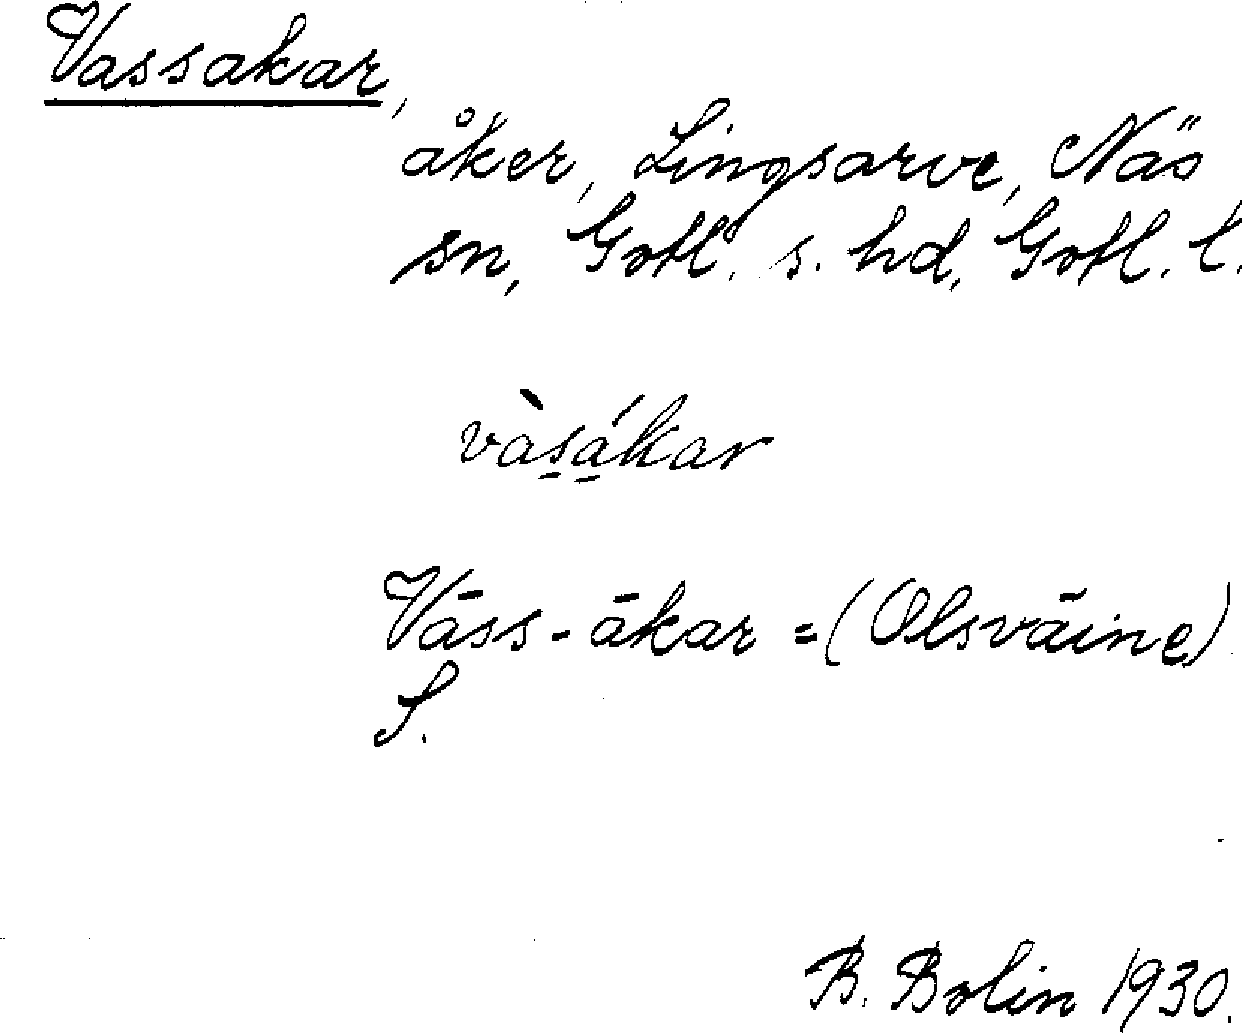 Vassakar,
åker, Lingsarve, Näs
sn, Gotl. s. hd, Gotl. l.
vàs̠á̠kar
Vāss-ākar = (Olsvāine)
S.
B. Bolin 1930.